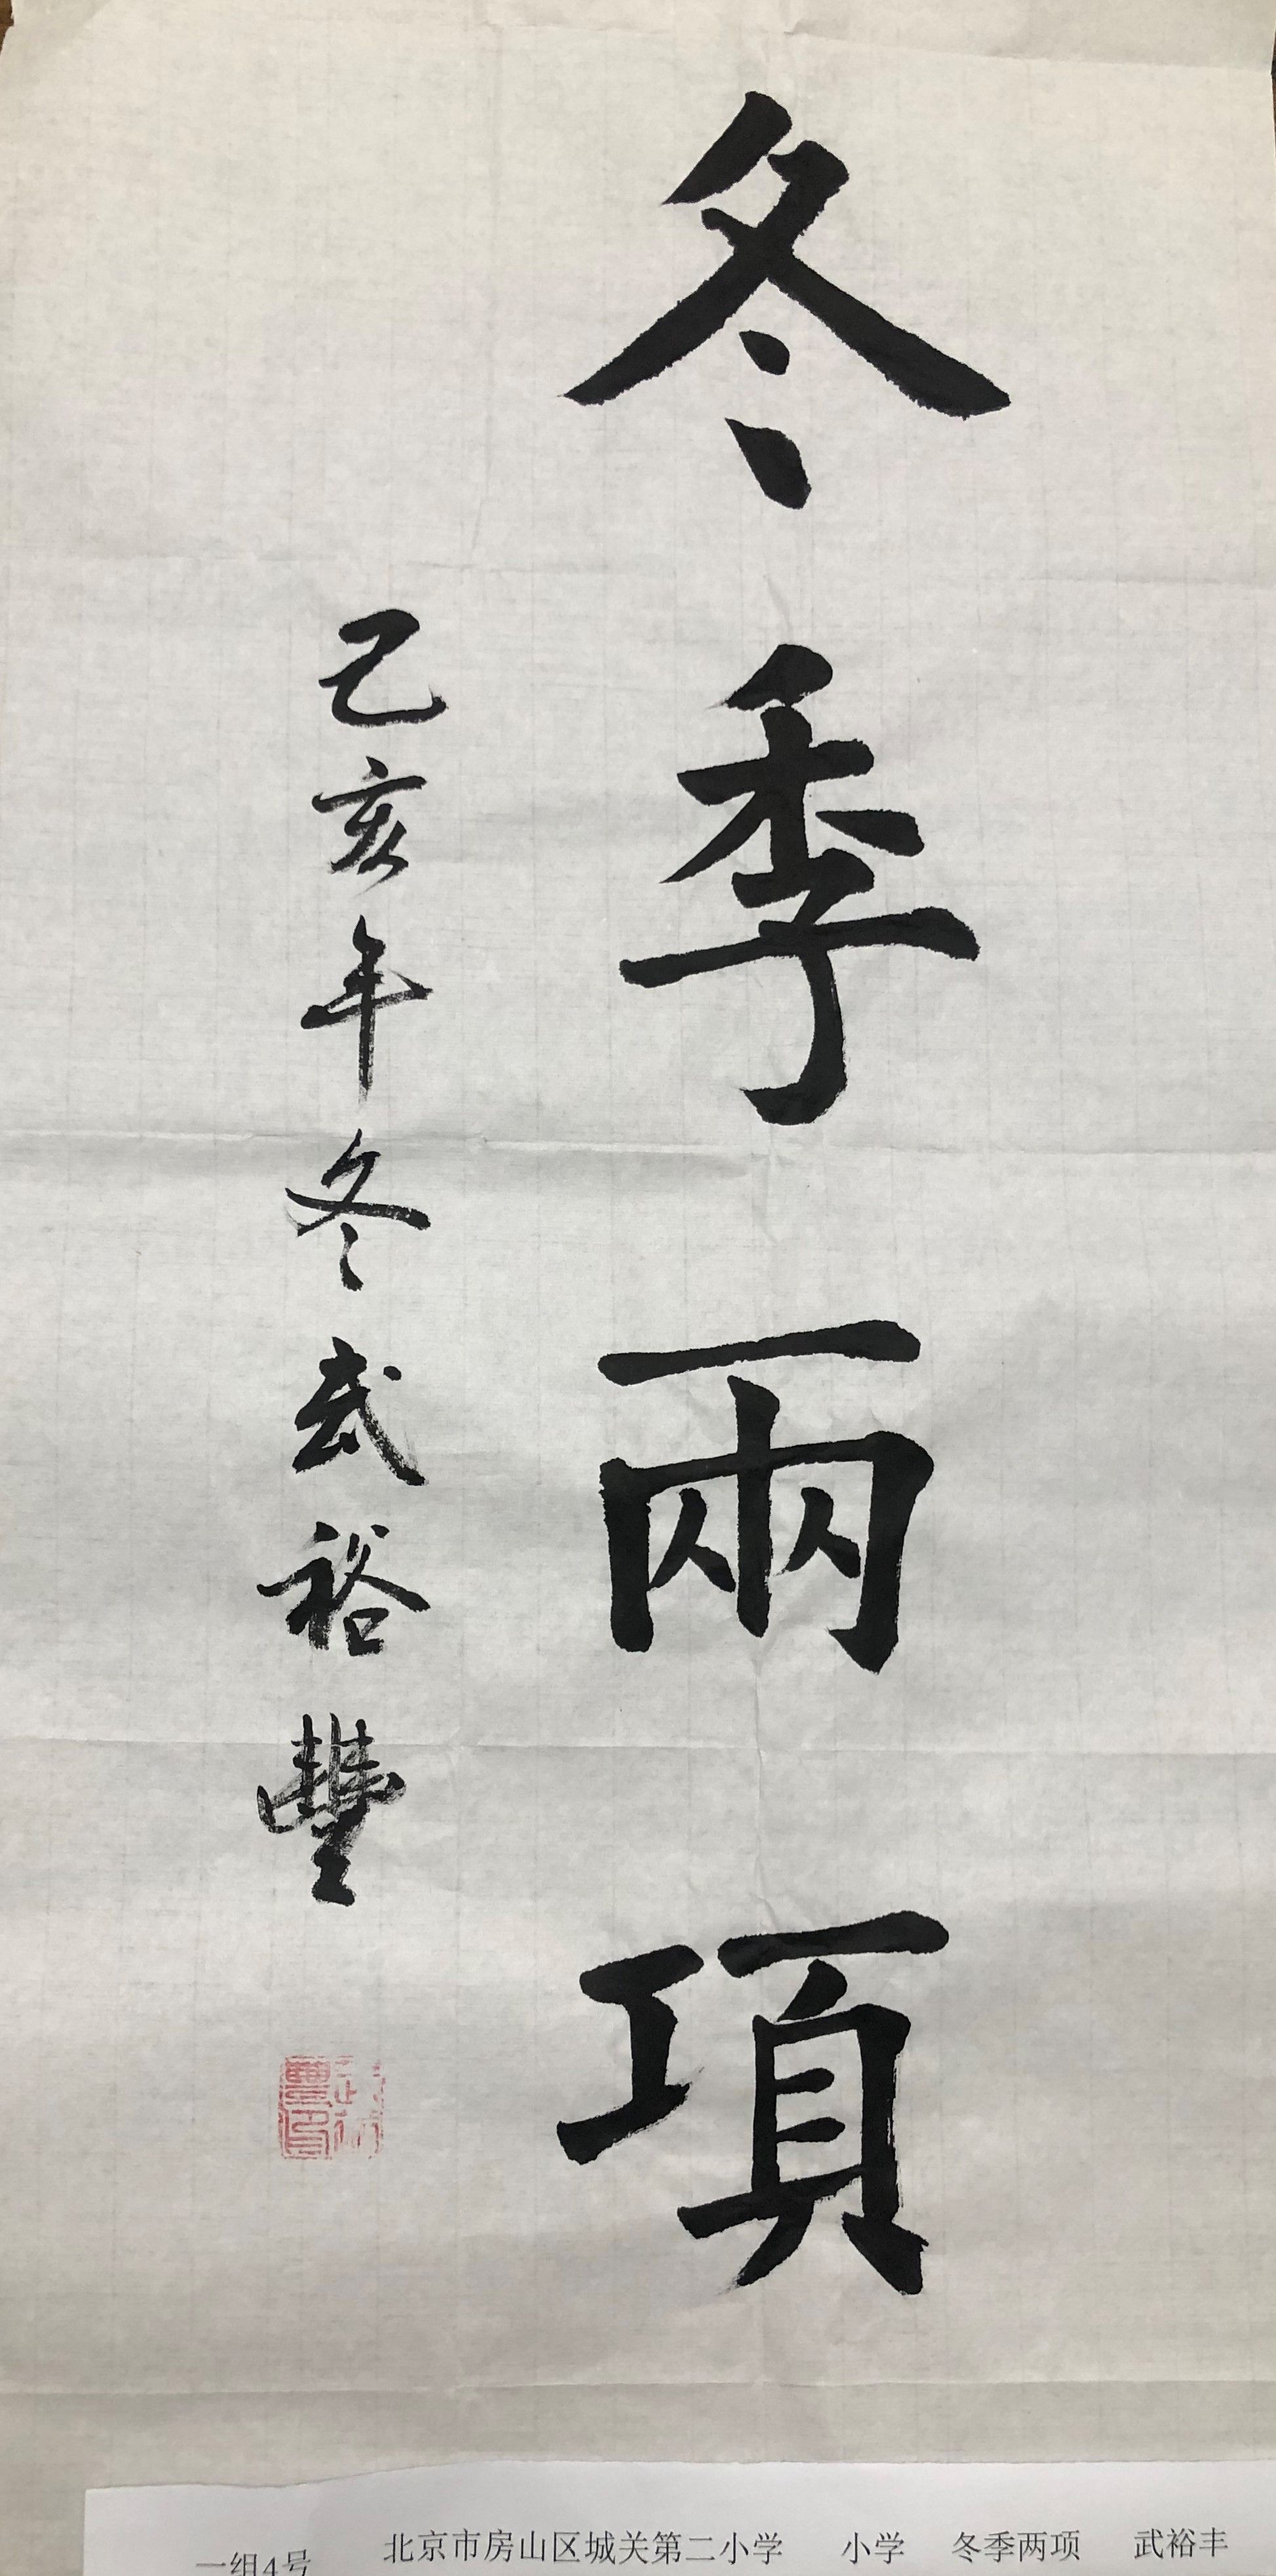 冬季兩項
己亥年冬武裕豐
一组4号 北京市房山区城关第二小学 小学 冬季两项 武裕丰